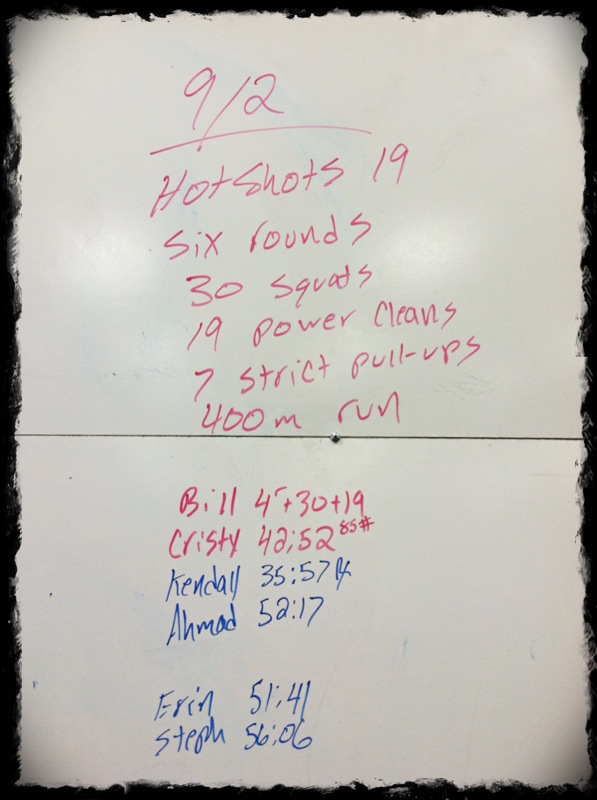 9/2
Hotshots 19
six rounds
30 squats
19 power cleans
7 strict pull-ups
400m run
Bill 4+30+19
Cristy 42:52 85#
Kendall 35:57 Rx
Ahmad 52:17
Erin 51:41
Steph 56:06